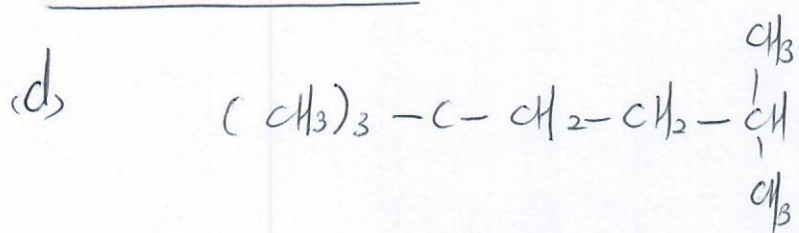 CH3
(d) (CH3)3 - C - CH2 - CH2 - CH
CH3